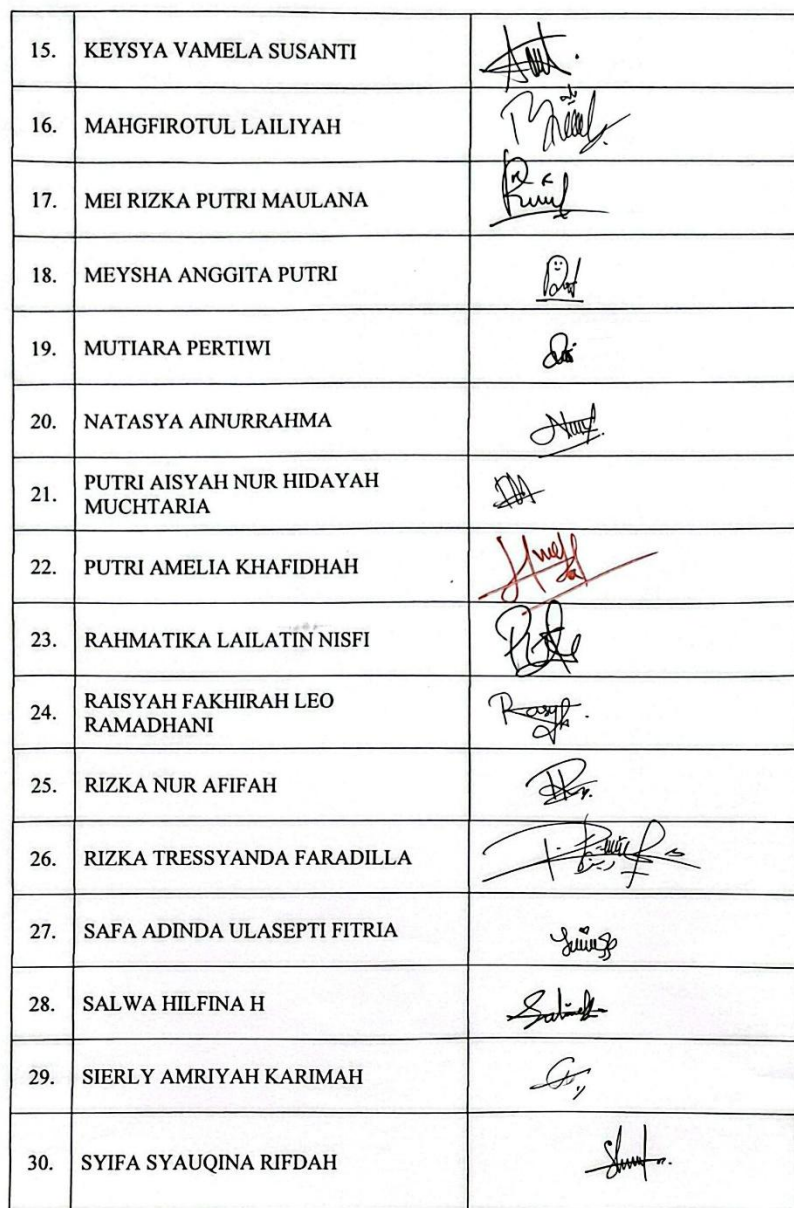 15. KEYSYA VAMELA SUSANTI
16. MAHGFIROTUL LAILIYAH
17. MEI RIZKA PUTRI MAULANA
18. MEYSHA ANGGITA PUTRI
19. MUTIARA PERTIWI
20. NATASYA AINURRAHMA
21. PUTRI AISYAH NUR HIDAYAH
MUCHTARIA
22. PUTRI AMELIA KHAFIDHAH
23. RAHMATIKA LAILATIN NISFI
24. RAISYAH FAKHIRAH LEO
RAMADHANI
25. RIZKA NUR AFIFAH
26. RIZKA TRESSYANDA FARADILLA
27. SAFA ADINDA ULASEPTI FITRIA
28. SALWA HILFINA H
29. SIERLY AMRIYAH KARIMAH
30. SYIFA SYAUQINA RIFDAH